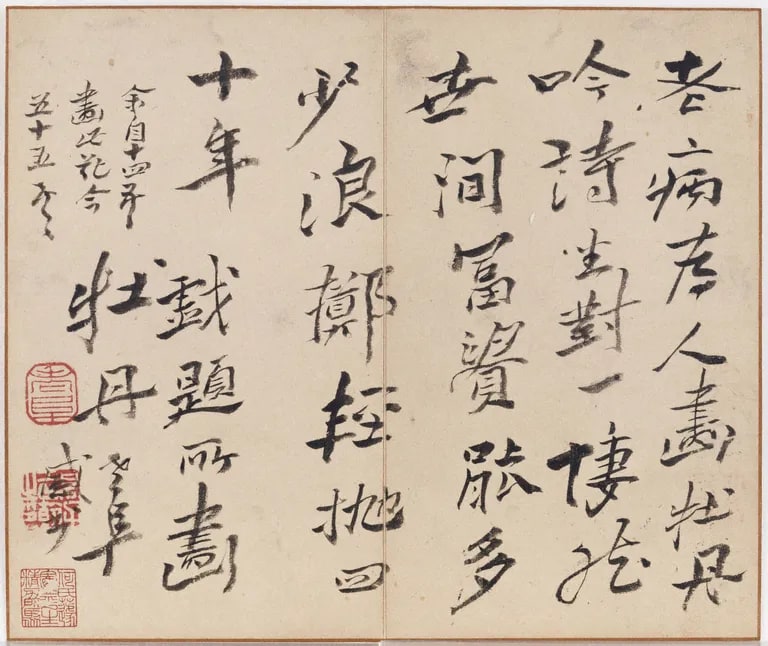 老病人畫牡丹
吟詩坐對一悽然
世間富貴能多
少浪擲輕拋四
十年 戲題所畫
牡丹 老阜
余自十四年
畫此花今
五十五矣